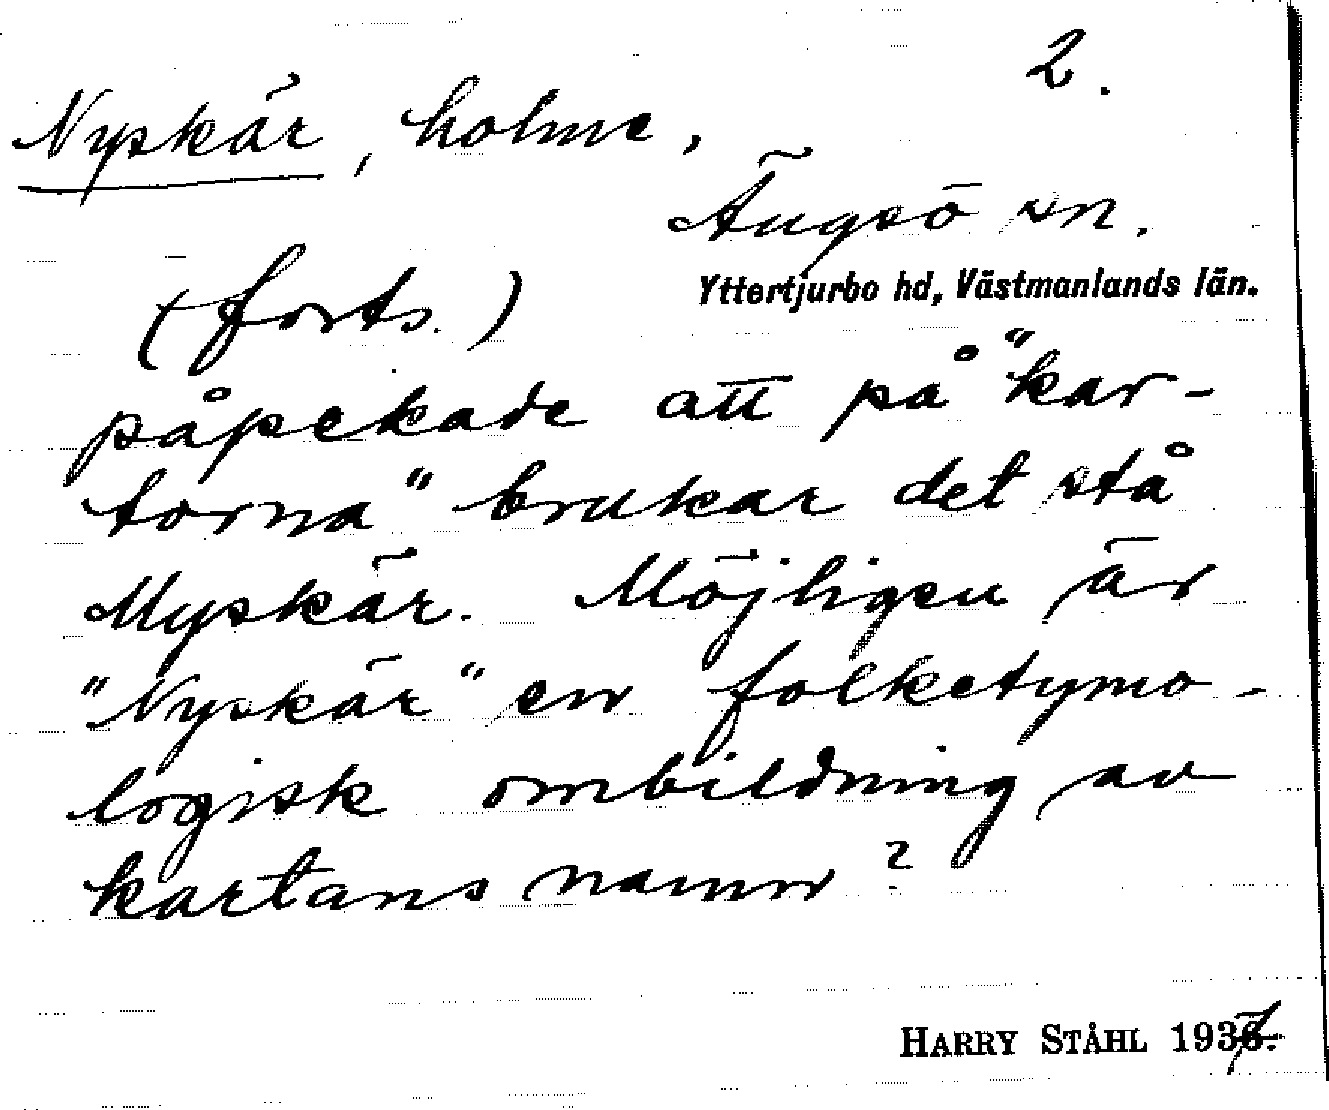 2.
Nyskär, holme,
Ängsö sn.
Yttertjurbo hd, Västmanlands län.
(forts.)
påpekade att på "kar-
torna" brukar det stå
Myskär. Möjligen är
"Nyskär" en folketymo-
logisk ombildning av
kartans namn?
HARRY STÅHL 1937.